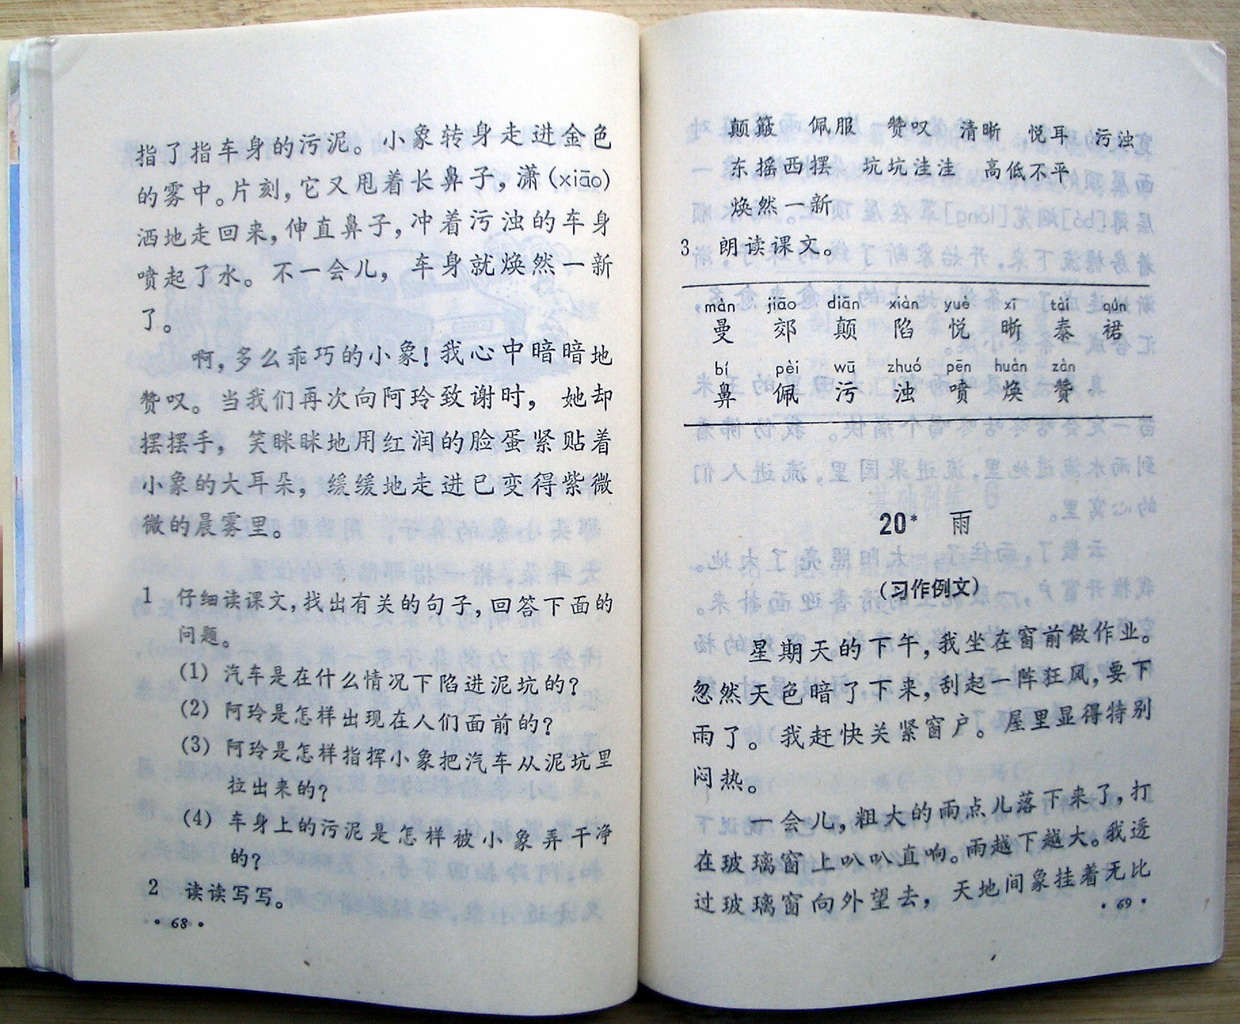 指了指车身的污泥。小象转身走进金色
的雾中。片刻，它又甩着长鼻子，潇(xiāo)
洒地走回来，伸直鼻子，冲着污浊的车身
喷起了水。不一会儿，车身就焕然一新
了。
啊，多么乖巧的小象！我心中暗暗地
赞叹。当我们再次向阿玲致谢时，她却
摆摆手，笑眯眯地用红润的脸蛋紧贴着
小象的大耳朵，缓缓地走进已变得紫微
微的晨雾里。
1 仔细读课文，找出有关的句子，回答下面的
问题。
(1) 汽车是在什么情况下陷进泥坑的？
(2) 阿玲是怎样出现在人们面前的？
(3) 阿玲是怎样指挥小象把汽车从泥坑里
拉出来的？
(4) 车身上的污泥是怎样被小象弄干净
的？
2 读读写写。
·68·
颠簸 佩服 赞叹 清晰 悦耳 污浊
东摇西摆 坑坑洼洼 高低不平
焕然一新
3 朗读课文。
màn jiāo diān xiàn yuè xī tài qún
曼 郊 颠 陷 悦 晰 泰 裙
bí pèi wū zhuó pēn huàn zàn
鼻 佩 污 浊 喷 焕 赞
20* 雨
(习作例文)
星期天的下午，我坐在窗前做作业。
忽然天色暗了下来，刮起一阵狂风，要下
雨了。我赶快关紧窗户。屋里显得特别
闷热。
一会儿，粗大的雨点儿落下来了，打
在玻璃窗上叭叭直响。雨越下越大。我透
过玻璃窗向外望去，天地间象挂着无比
·69·